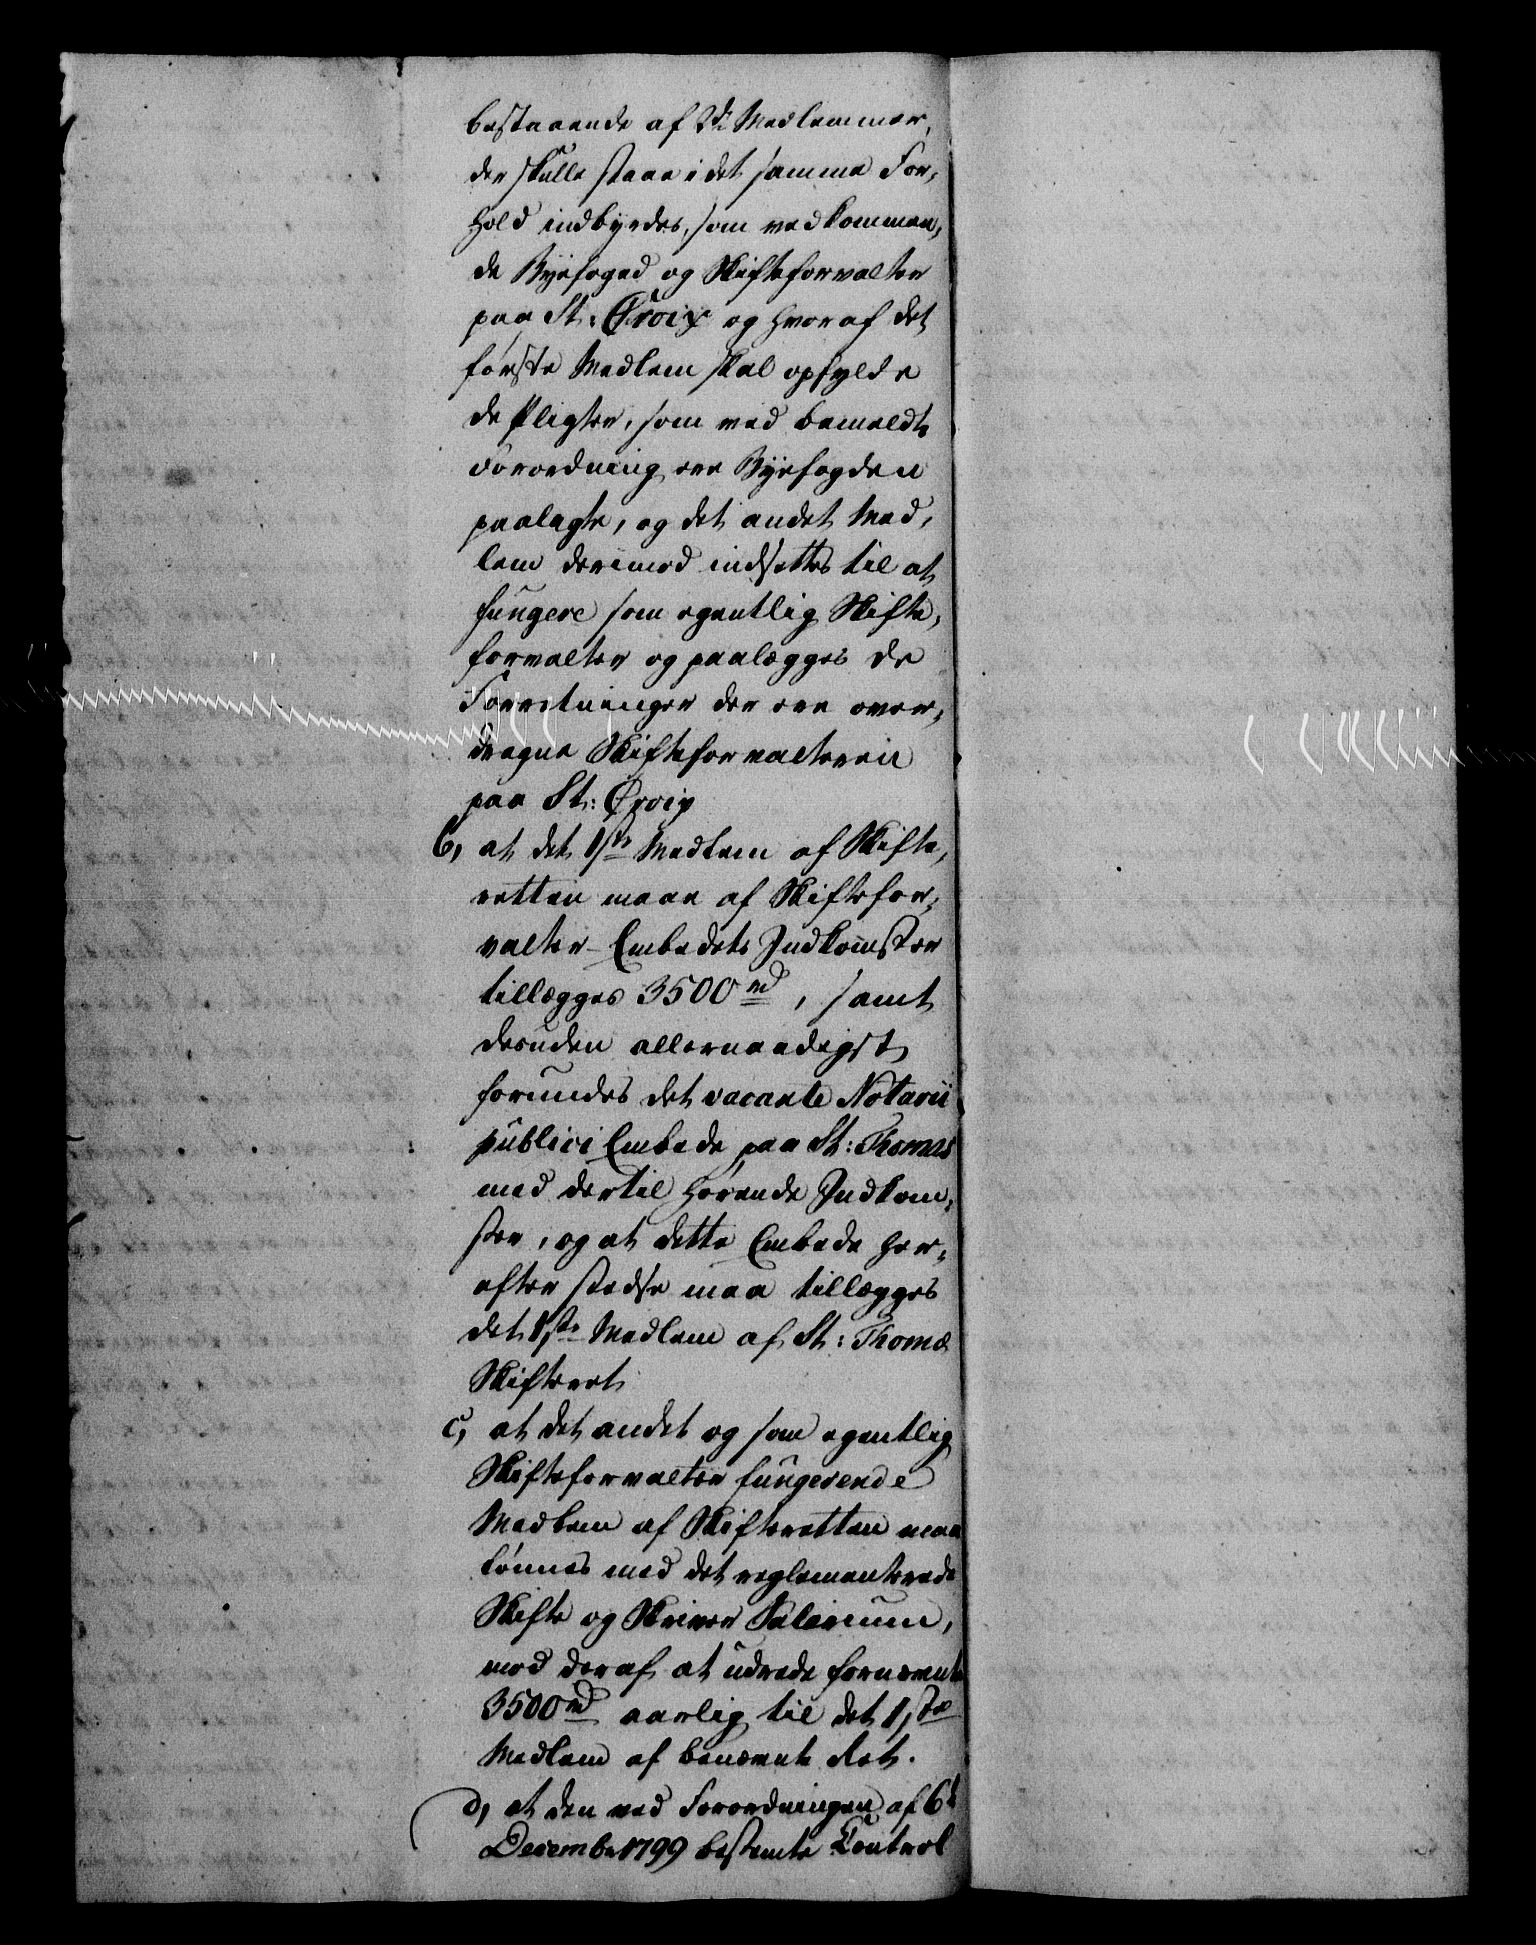 bestaaende af 2de Medlemmer,
der skulle staae i det samme For,
hold indbyrdes, som vedkommen,
de Byefoged og Skifteforvalter
paa St: Croix og hvoraf det
første Medlem skal opfylde
de Pligter, som ved bemeldte
Forordning ere Byefogden
paalagte, og det andet Med,
lem derimod indsættes til at
fungere som egentlig Skifte,
forvalter og paalægges de
Forretninger der ere over,
dragne Skifteforvalteren
paa St: Croix
b, at det 1ste Medlem af Skifte,
retten maae af Skiftefor,
valter-Embedets Indkomster
tillægges 3500 rd, samt
desuden allernaadigst
forundes det vacante Notarii
publici Embede paa St: Thomas
med dertil hørende Indkom,
ster, og at dette Embede her,
efter stedse maa tillægges
det 1ste Medlem af St: Thomæ
Skifteret
c, at det andet og som egentlig
Skifteforvalter fungerende
Medlem af Skifteretten maa
lønnes med det reglementerede
Skifte og Skriver Salarium,
mod deraf at udrede fornævnte
3500 rd aarlig til det 1ste
Medlem af benævnte Ret.
d, at den ved Forordningen af 6t
Decembr 1799 bestemte Control